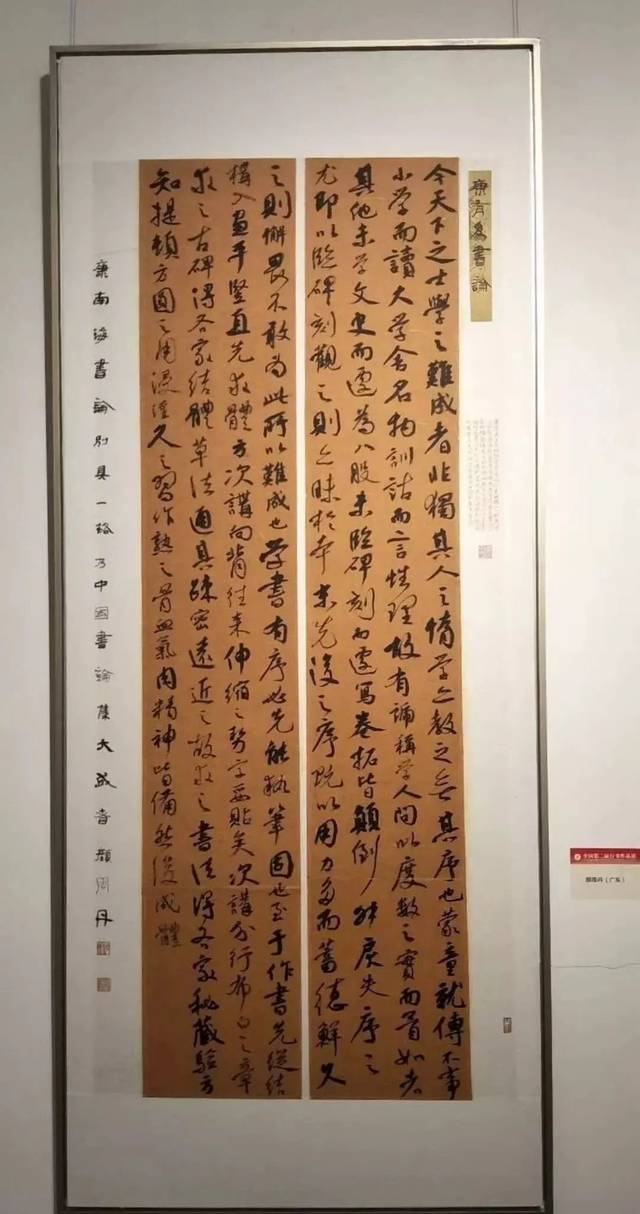 康有為書論
今天下之士學之難成者非獨其人之惰學亦教之無其序也蒙童就傅不事
小学而讀大学舍名物訓詁而言性理故有誦稱学人問以度數之實而瞢如者
其他未学文史而遽為八股未臨碑刻而遽寫卷折皆顛倒戾失序之
尤即以臨碑刻觀之則亦昧於本末先後之序既以用力多而蓄德鮮久
之則懈畏不敢為此所以難成也学書有序必先能執筆固也至于作書先從結
構入畫平竪直先求體方次講向背往来伸縮之勢字妥貼矣次講分行布白之章
求之古碑得各家結體草法通其疎密遠近之故求之書法得各家秘藏驗方
知提頓方圓之用浸淫久之習作熟之骨血氣肉精神皆備然後成體
康南海書論別具一路乃中國書論集大成者顏周丹
中国第二届行书作品展
（广东）